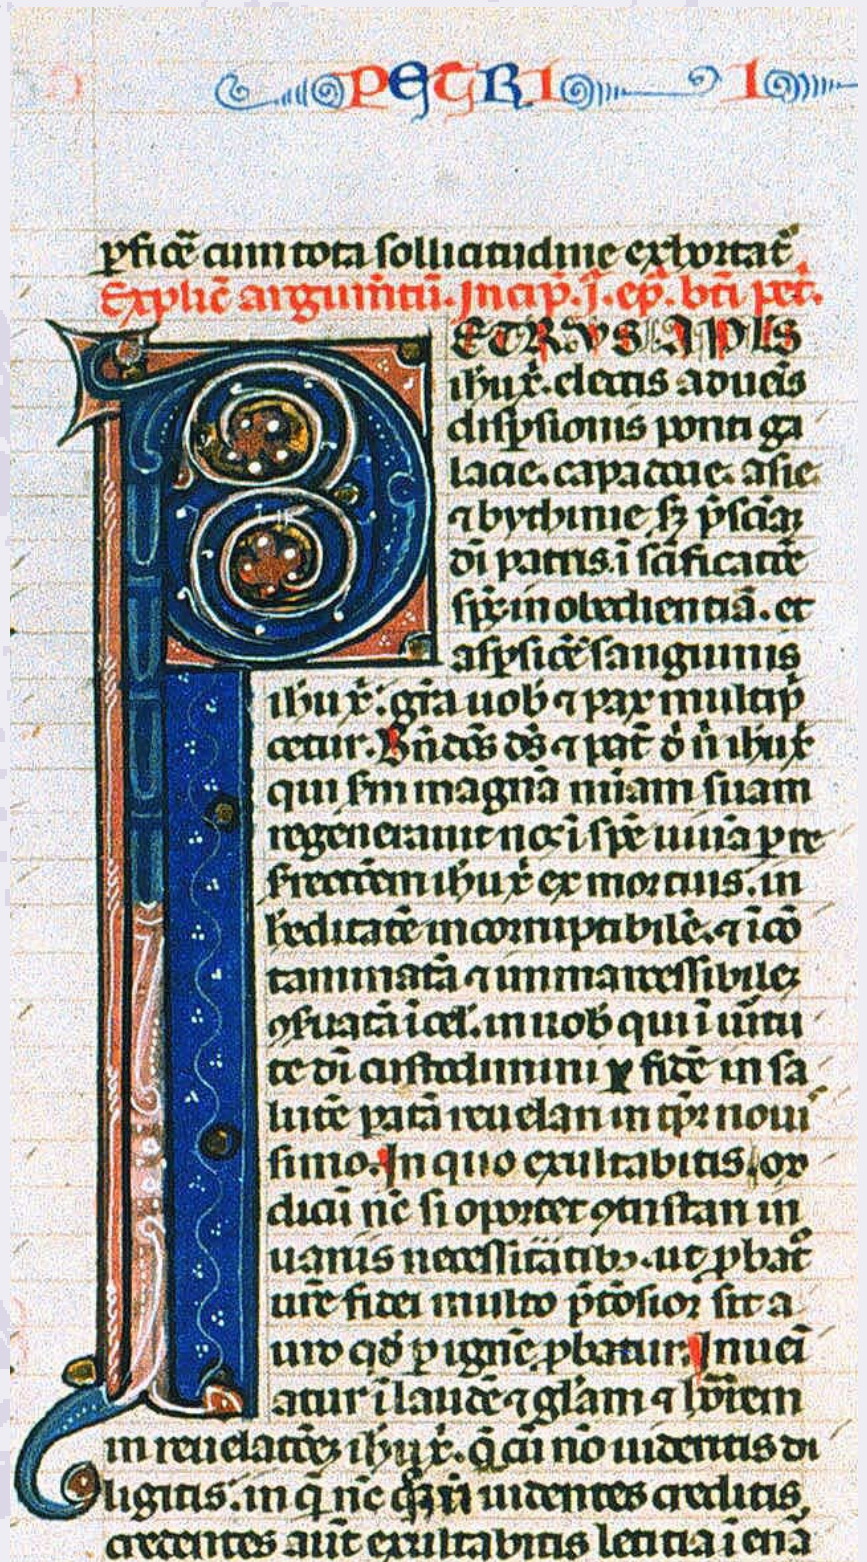 PETRI I
ꝓficē cum tota sollicitudine exhortat᷑
Explic̄ argum̄tū. Incip̄. ī. ep̄. bt̄i pet̄.
PETRVS APLS
ihu xp̄. electis aduen̄is
disꝑsionis ponti ga
latie. capadocie. asie
⁊ bythinie sꝫ p̄sciāꝫ
dī patris. ī sc̄ificatōe
sp̄s. in obedientiā. et
asꝑsiōē sanguinis
ihu xp̄. gr̄a uob̄ ⁊ pax multip̄
cetur. Bn̄dc̄s ds̄ ⁊ pat̄ d̄ n̄ ihu xp̄
qui s̄m magnā mīam suam
regenerauit nos ī spē uiuā ꝑ re
surrectōem ihu xp̄ ex mortuis. in
hēditatē incorruptibilē. ⁊ īcō
taminatā ⁊ inmarcessibilēꝫ
ꝯseruatā ī cel̄. in uob̄ qui ī uirtu
te dī custodimini ꝑ fidē in sa
lutē patā reuelari in tp̄r noui
simo. In quo exultabitis.
dicū nc̄ si oportet ꝯtristari in
uariis necessitatibꝫ. ut ꝓbat̄
ur̄e fidei multo p̄tiosior sit a
uro qd̄ ꝑ ignē ꝓbatur. Inuēi
atur ī laudē ⁊ gl̄am ⁊ hōrem
in reuelatōeꝫ ihu xp̄. q̄ cū nō uideritis di
ligitis. in q̄ nc̄ qꝫ n̄ uidentes creditis,
credentes aut̄ exultabitis letitia ī enā